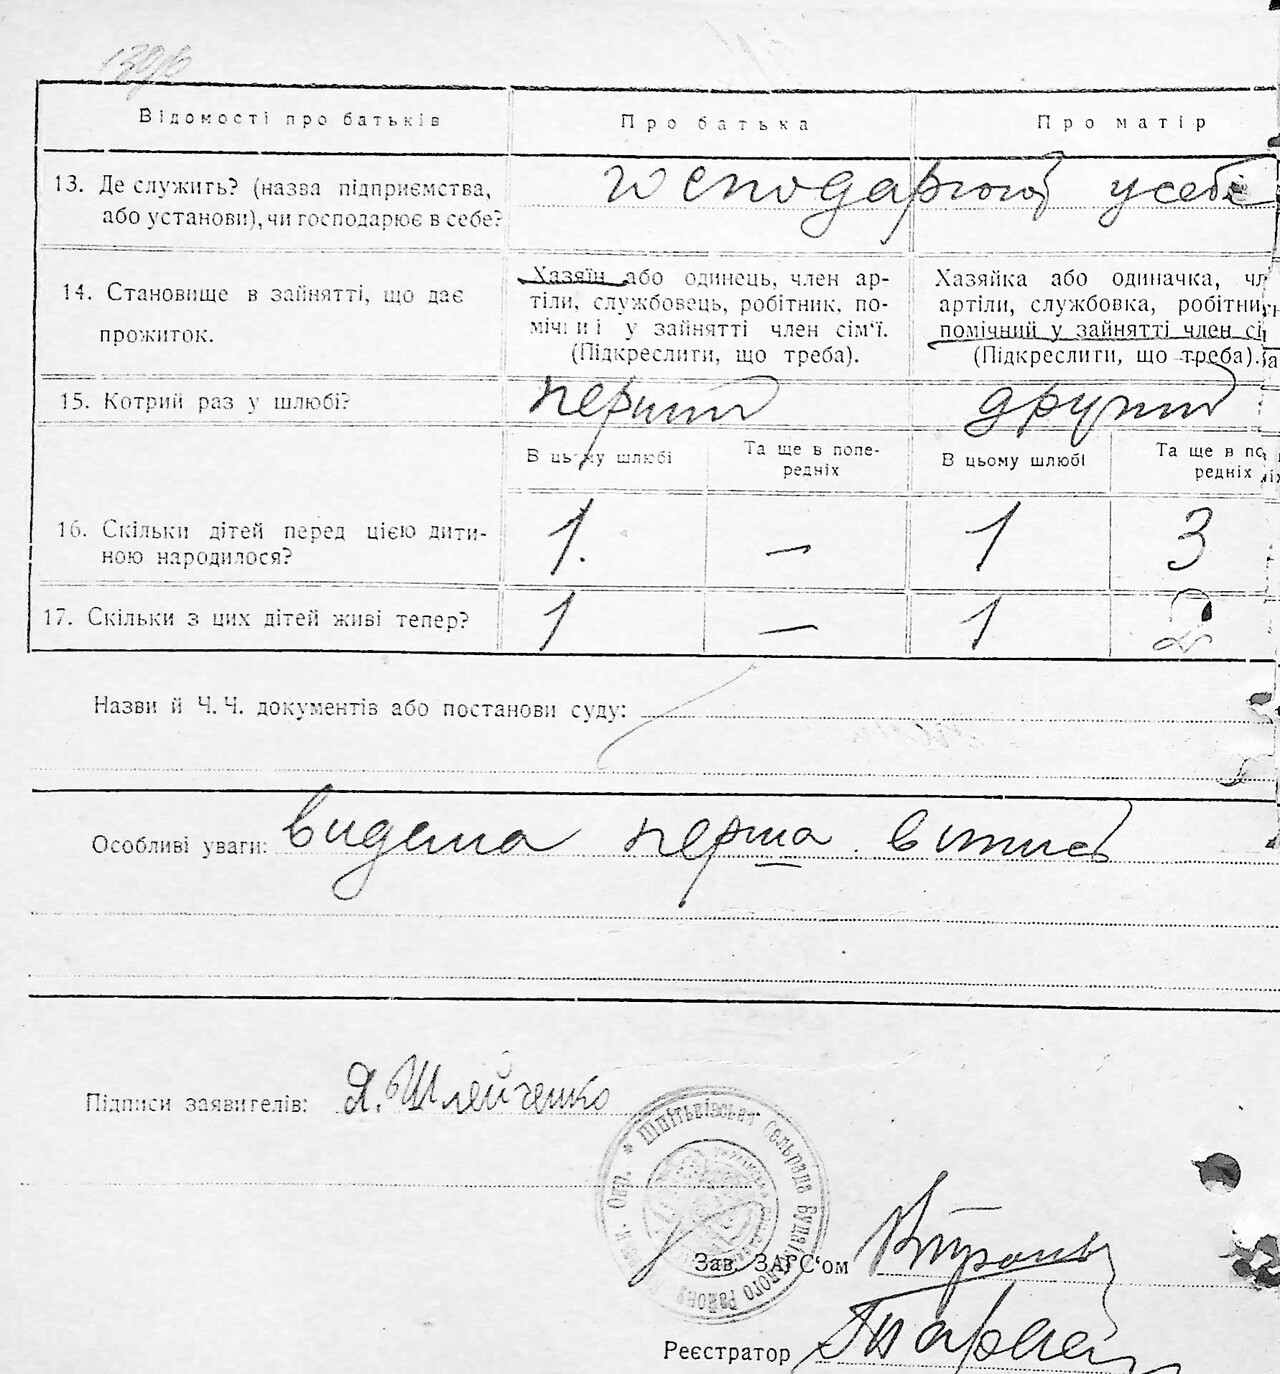 Відомості про батьків
Про батька
Про матір
13. Де служить? (назва підприємства,
або установи), чи господарює в себе?
господарюют у себе
14. Становище в зайнятті, що дає
прожиток.
Хазяїн або одинець, член ар-
тілі, службовець, робітник, по-
мічниі у зайнятті член сім'ї.
(Підкреслити, що треба).
Хазяйка або одиначка, чл
артілі, службовка, робітниц
помічний у зайнятті член сі
(Підкреслити, що треба).
15. Котрий раз у шлюбі?
перший
другий
В цьому шлюбі
Та ще в попе-
редніх
В цьому шлюбі
Та ще в по
редніх
16. Скільки дітей перед цією дити-
ною народилося?
1.
—
1
3
17. Скільки з цих дітей живі тепер?
1
—
1
2
Назви й Ч. Ч. документів або постанови суду:
Особливі уваги: видана перша витись
Підписи заявителів: Я. Шлейченко
Шпильківська Сельрада
Району
Окр.
Зав. ЗАРС'ом
Реєстратор